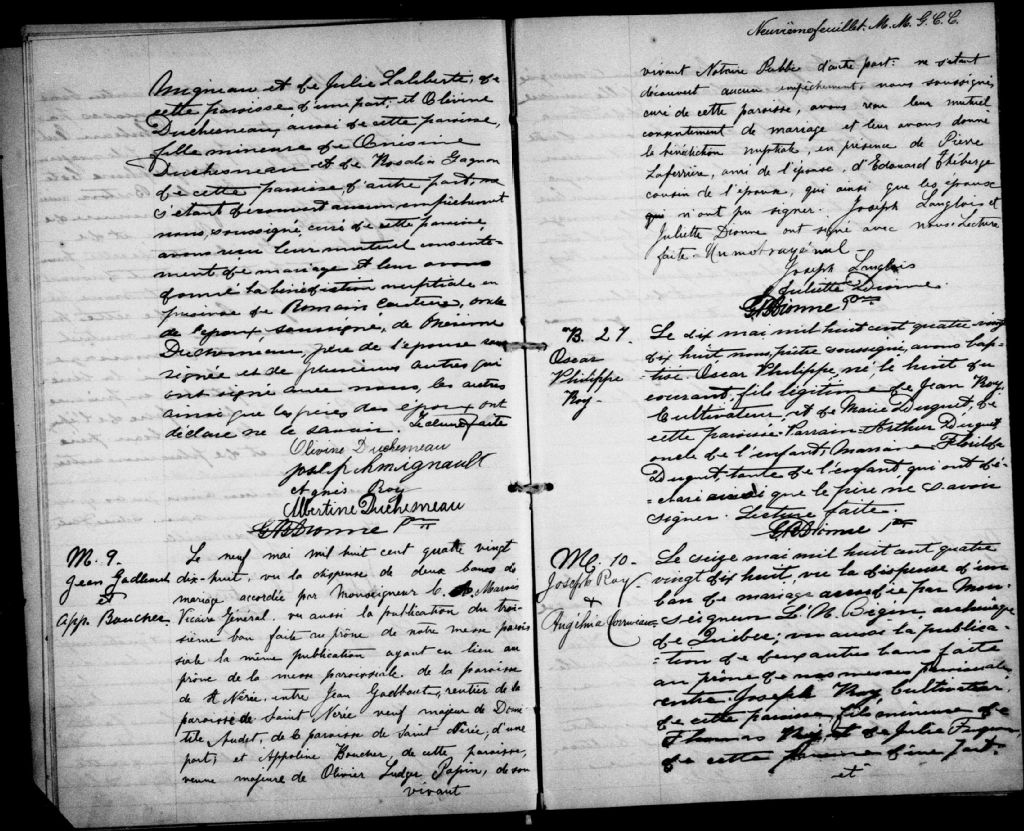 Mignau et de Julie Laliberté, de
cette paroisse d'une part; et Olivine
Duchesneau, aussi de cette paroisse,
fille mineure de Onésime
Duchesneau et de Rosalie Gagnon
de cette paroisse d'autre part, ne
s'étant découvert aucun empêchement
nous, soussigné, curé de cette paroisse,
avons reçu leur mutuel consente-
ment de mariage et leur avons
donné la bénédiction nuptiale en
présence de Romain Couture, oncle
de l'époux soussigné, de Onésime
Duchesneau, père de l'épouse sous
signée et de plusieurs autres qui
ont signé avec nous, les autres
ainsi que les pères des époux ont
déclaré ne le savoir. Lecture faite
Olivine Duchesneau
Joseph Amignault
Agnès Roy
Albertine Duchesneau
Dionne Ptre
M. 9.
Jean Gadbout
et
App. Boucher
Le neuf mai mil huit cent quatre vingt
dix-huit, vu la dispense de deux bans de
mariage accordée par Monseigneur C. A. Marois
Vicaire Général, vu aussi la publication du troi-
sième ban faite au prône de notre messe parois
siale la même publication ayant eu lieu au
prône de la messe paroissiale de la paroisse
de St Nérée, entre Jean Gadbout, rentier de la
paroisse de Saint Nérée veuf majeur de Domi
tile Audet, de la paroisse de Saint Nérée, d'une
part; et Appoline Boucher, de cette paroisse,
veuve majeure de Olivier Ludger Papin, de son
vivant
Neuvième feuillet. M. M. G. C. C.
vivant Notaire Public d'autre part: ne s'étant
découvert aucun empêchement, nous soussigné,
curé de cette paroisse, avons reçu leur mutuel
consentement de mariage et leur avons donné
la bénédiction nuptiale, en présence de Pierre
Laferrière, ami de l'épouse, d'Edouard Théberge
cousin de l'époux, qui ainsi que les époux
qui n'ont pu signer. Joseph Langlois et
Juliette Dionne ont signé avec nous. Lecture
faite - Un mot rayé nul -
Joseph Langlois
Juliette Dionne.
Dionne Ptre
B. 27.
Oscar
Philippe
Roy.
Le dix mai mil huit cent quatre vingt
dix huit, nous, prêtre soussigné, avons bap-
-tisé Oscar Philippe, né le huit du
courant, fils légitime de Jean Roy,
Cultivateur, et de Marie Duquet, de
cette paroisse. Parrain Arthur Duquet
oncle de l'enfant; Marraine Florida
Duquet, tante de l'enfant, qui ont dé-
-claré ainsi que le père ne savoir
signer. Lecture faite.
Dionne Ptre
M. 10.
Joseph Roy
&
Angélina Corriveau
Le seize mai mil huit cent quatre
vingt dix huit, vu la dispense d'un
ban de mariage accordée par Mon-
-seigneur L. N. Bégin, archevêque
de Québec; vu aussi la publica-
-tion de deux autres bans faite
au prône de nos messes paroissiales
entre Joseph Roy, Cultivateur,
de cette paroisse, fils mineur de
Thomas Roy, et de Julie
de cette paroisse d'une part.
et